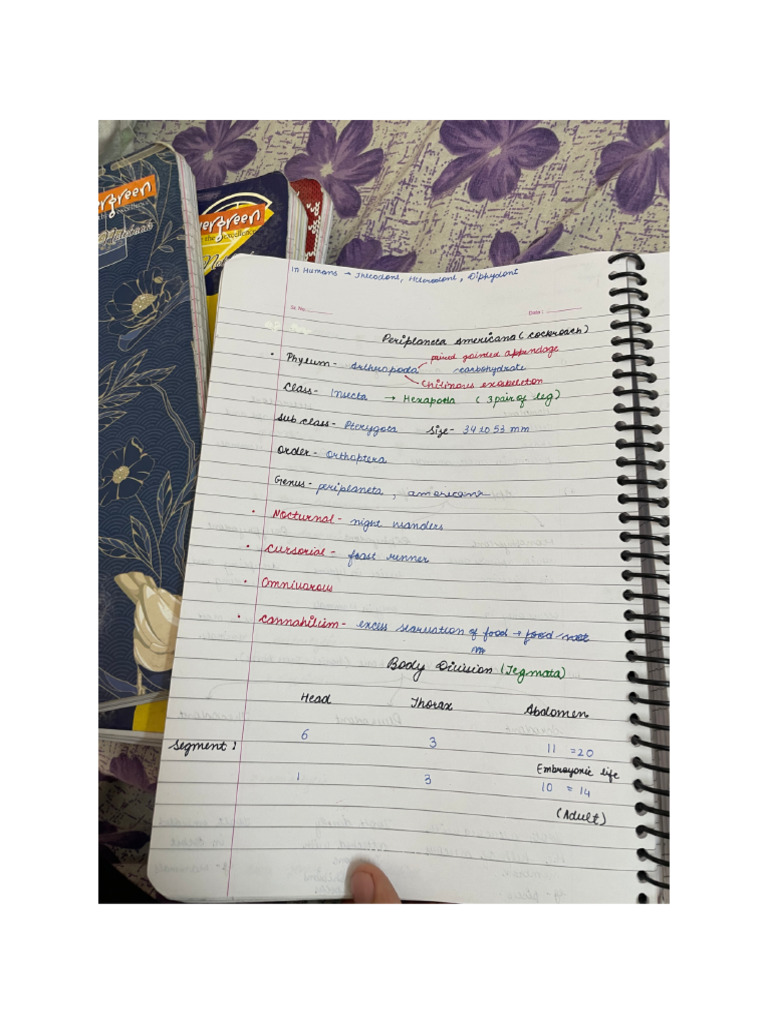 evergreen
Notebook
evergreen
In Humans → Thecodont, Heterodont, Diphydont
Sr. No.
Date :
Periplaneta Americana (cockroach)
paired jointed appendage
• Phylum - Arthrapoda carbohydrate
Chitinous exoskeleton
Class - Insecta → Hexapoda ( 3 pair of leg)
Sub class - Pterygota size - 34 to 53 mm
Order - Orthoptera
Genus - periplaneta , americana
• Nocturnal - night wanders
• Cursorial - fast runner
• Omnivarous
• Cannabilism - excess starvation of food → food not
Body Division (Tegmata)
Head Thorax Abdomen
Segment : 6 3 11 = 20
Embroyonic life
1 3 10 = 14
(Adult)